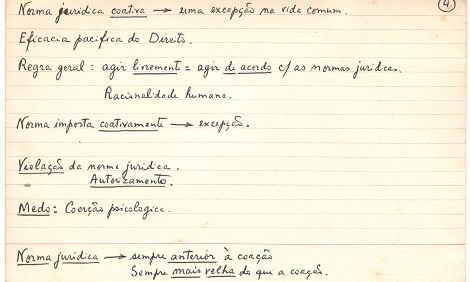 Norma juridica coativa → uma excepção na vida comum. 4
Eficacia pacifica do Direito.
Regra geral : agir livremente = agir de acordo c/ as normas juridicas.
Racionalidade humana.
Norma imposta coativamente → excepção.
Violação da norma juridica.
Autorizamento.
Medo: Coerção psicologica.
Norma juridica → sempre anterior à coação
Sempre mais velha do que a coação.